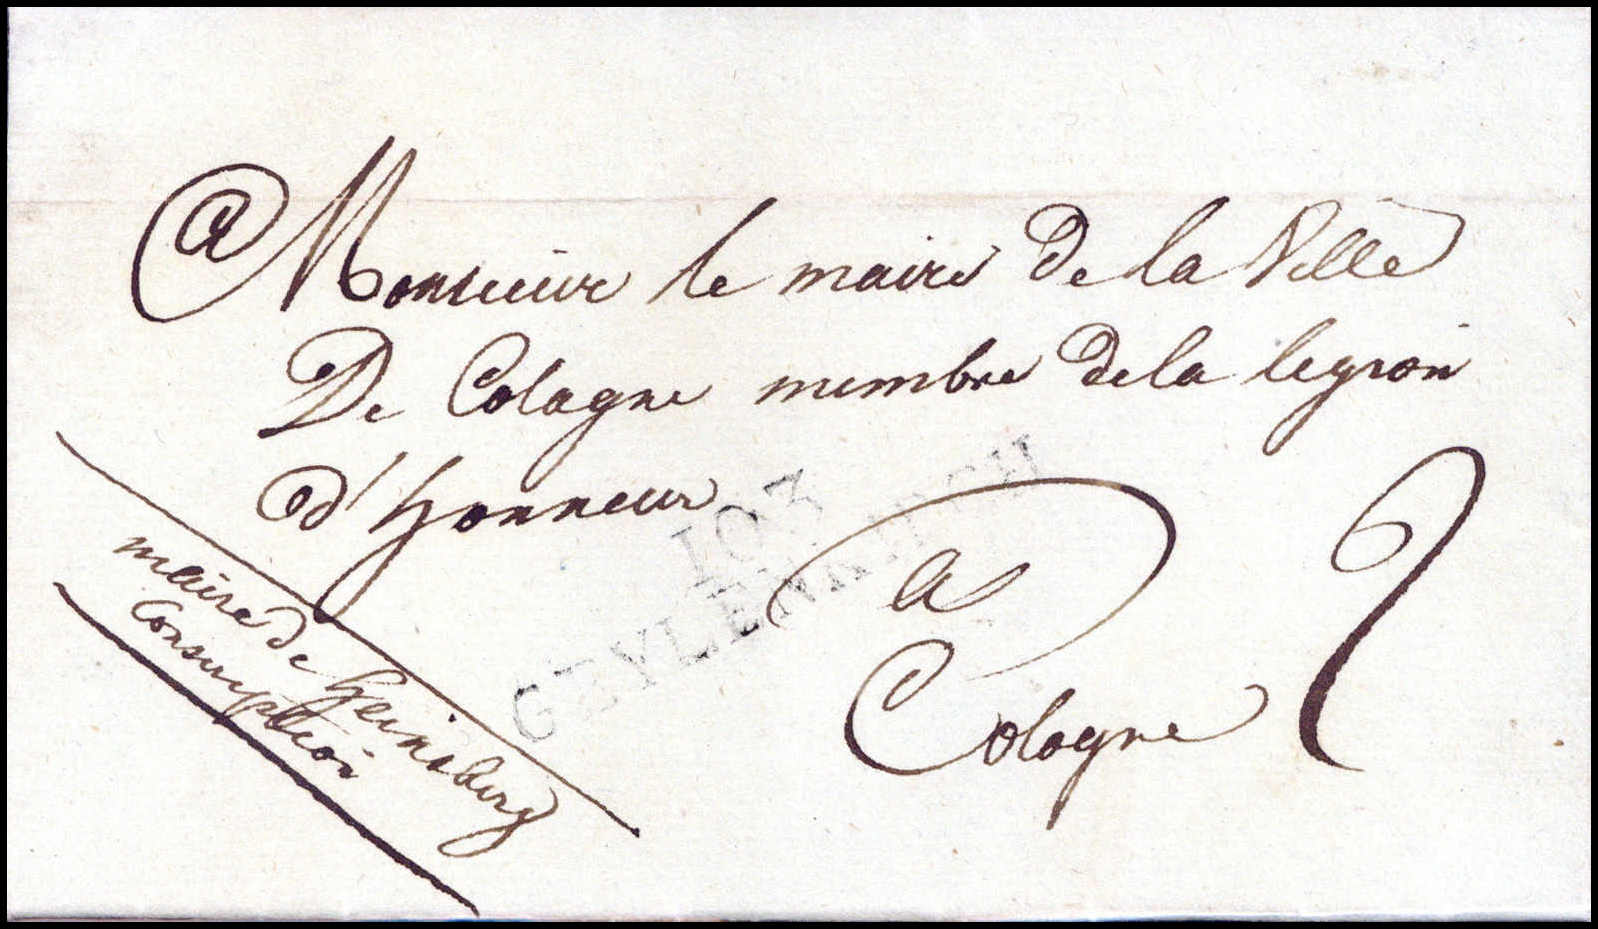 a Monsieur le maire de la Ville
De Cologne membre de la legion
d'honneur
103
GEYLENKIRCH
a
Cologne
2
maire de heinsberg
Conscription